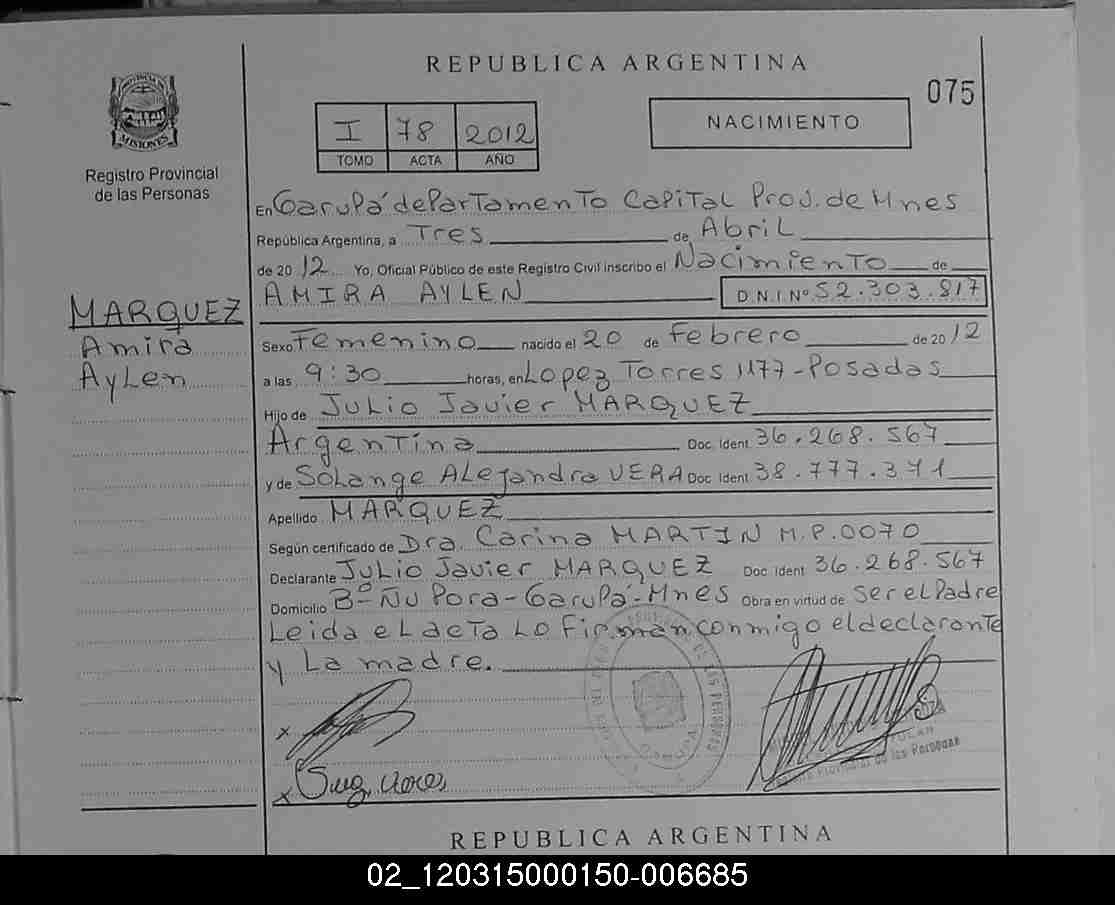 REPUBLICA ARGENTINA
075
PROVINCIA DE
MISIONES
Registro Provincial
de las Personas
I 78 2012
TOMO ACTA AÑO
NACIMIENTO
En Garupá departamento Capital Prov. de Mnes
República Argentina, a Tres de Abril
de 2012 Yo, Oficial Público de este Registro Civil inscribo el Nacimiento de
AMIRA AYLEN D.N.I. Nº 52.303.817
MARQUEZ
Amira
Aylen
Sexo Femenino nacido el 20 de Febrero de 2012
a las 9:30 horas, en Lopez Torres 1177-Posadas
Hijo de Julio Javier MARQUEZ
Argentina Doc. Ident. 36.268.567
y de Solange Alejandra VERA Doc. Ident. 38.777.371
Apellido MARQUEZ
Según certificado de Dra. Carina MARTIN M.P.0070
Declarante Julio Javier MARQUEZ Doc. Ident. 36.268.567
Domicilio Bº Ñu Pora-Garupá-Mnes Obra en virtud de ser el Padre
Leida el acta lo firman conmigo el declarante
y la madre.
x
x
DE LAS PERSONAS
de las Personas
REPUBLICA ARGENTINA
02_120315000150-006685